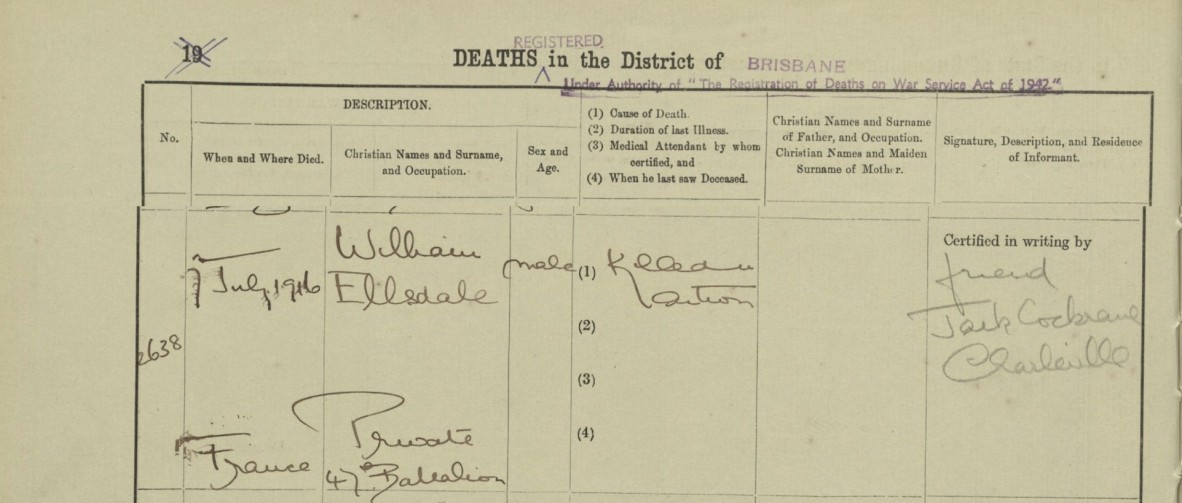 19
REGISTERED
DEATHS in the District of BRISBANE
Under Authority of "The Registration of Deaths on War Service Act of 1942."
No.
DESCRIPTION.
When and Where Died.
Christian Names and Surname,
and Occupation.
Sex and
Age.
(1) Cause of Death.
(2) Duration of last Illness.
(3) Medical Attendant by whom
certified, and
(4) When he last saw Deceased.
Christian Names and Surname
of Father, and Occupation.
Christian Names and Maiden
Surname of Mother.
Signature, Description, and Residence
of Informant.
2638
7 July 1916
France
William
Ellsdale
Private
47 Battalion
male
(1) Killed in
action
(2)
(3)
(4)
Certified in writing by
friend
Jack Cochrane
Charleville